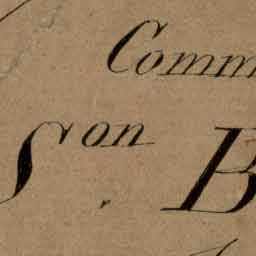 Comm
Son. B